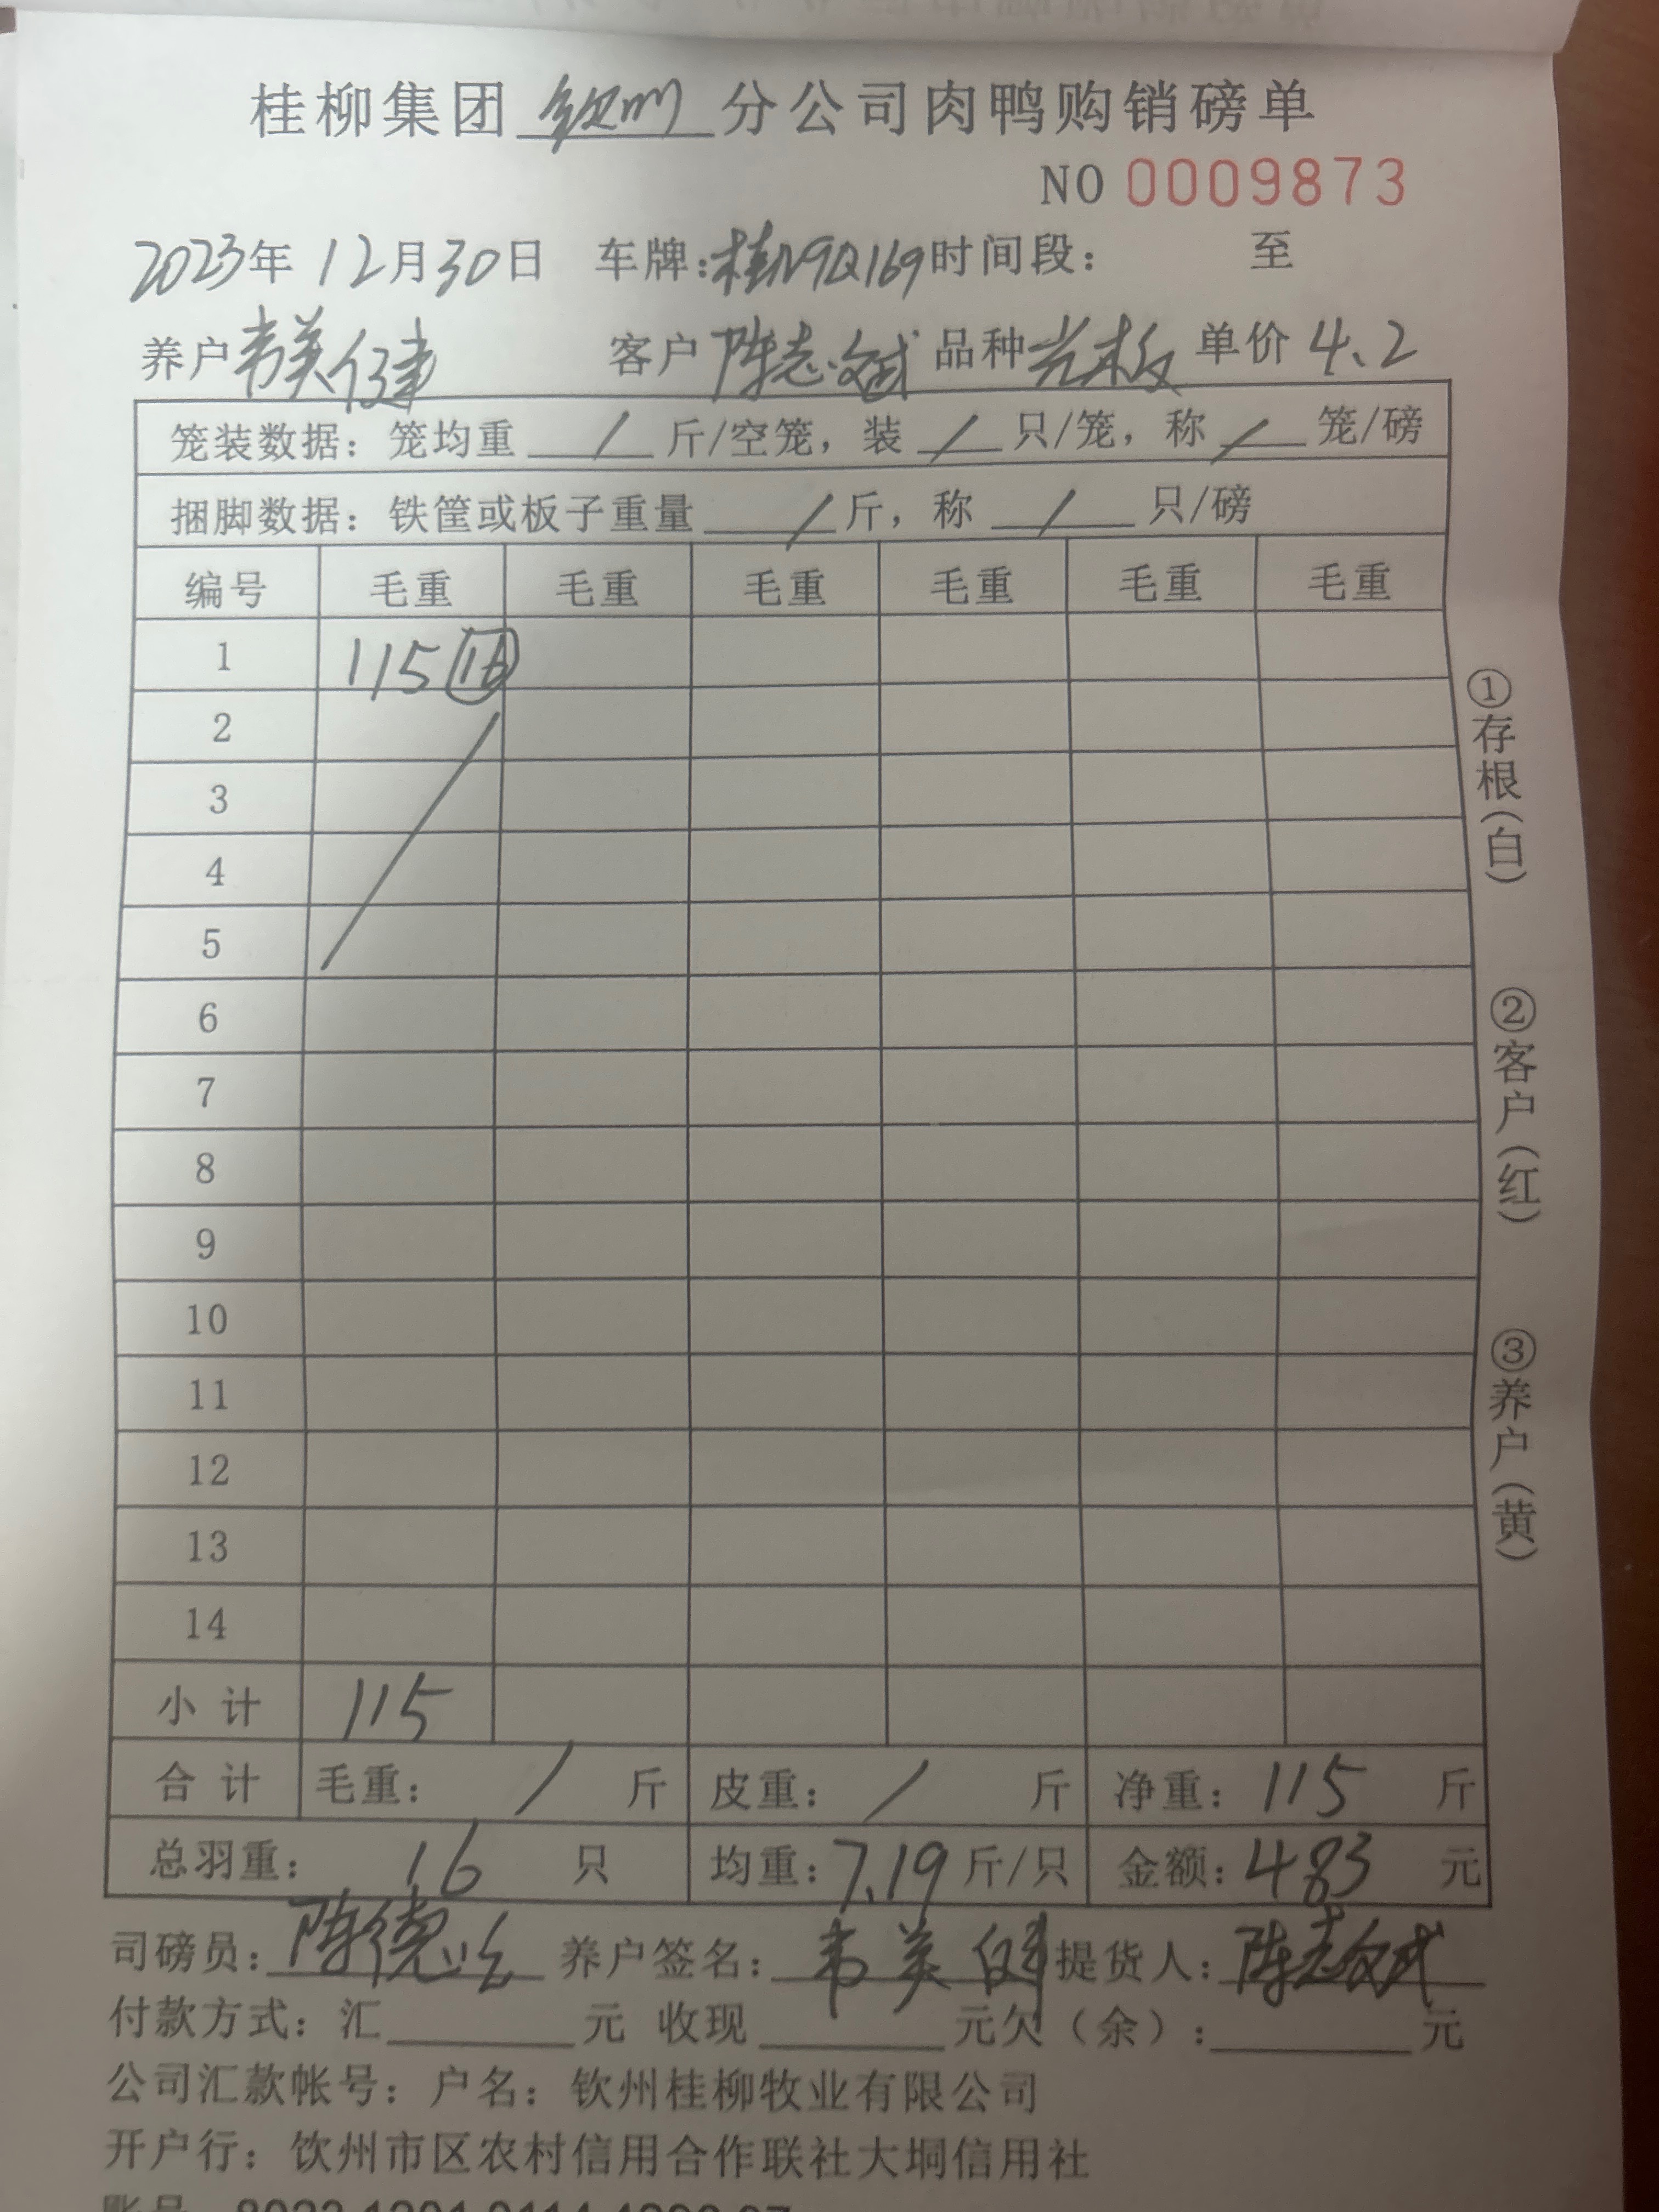 桂柳集团 钦州 分公司肉鸭购销磅单
NO 0009873
2023年 12月30日 车牌:桂N9Q169 时间段: 至
养户 韦美健 客户 陈志斌 品种 光板 单价 4.2
笼装数据: 笼均重 / 斤/空笼, 装 / 只/笼, 称 / 笼/磅
捆脚数据: 铁筐或板子重量 / 斤, 称 / 只/磅
编号 毛重 毛重 毛重 毛重 毛重 毛重
1 115 16
2
3
4
5
6
7
8
9
10
11
12
13
14
小计 115
合计 毛重: / 斤 皮重: / 斤 净重: 115 斤
总羽重: 16 只 均重: 7.19 斤/只 金额: 483 元
司磅员: 陈德 养户签名: 韦美健 提货人: 陈志斌
付款方式: 汇 元 收现 元欠(余): 元
公司汇款帐号: 户名: 钦州桂柳牧业有限公司
开户行: 饮州市区农村信用合作联社大垌信用社
①存根(白)
②客户(红)
③养户(黄)